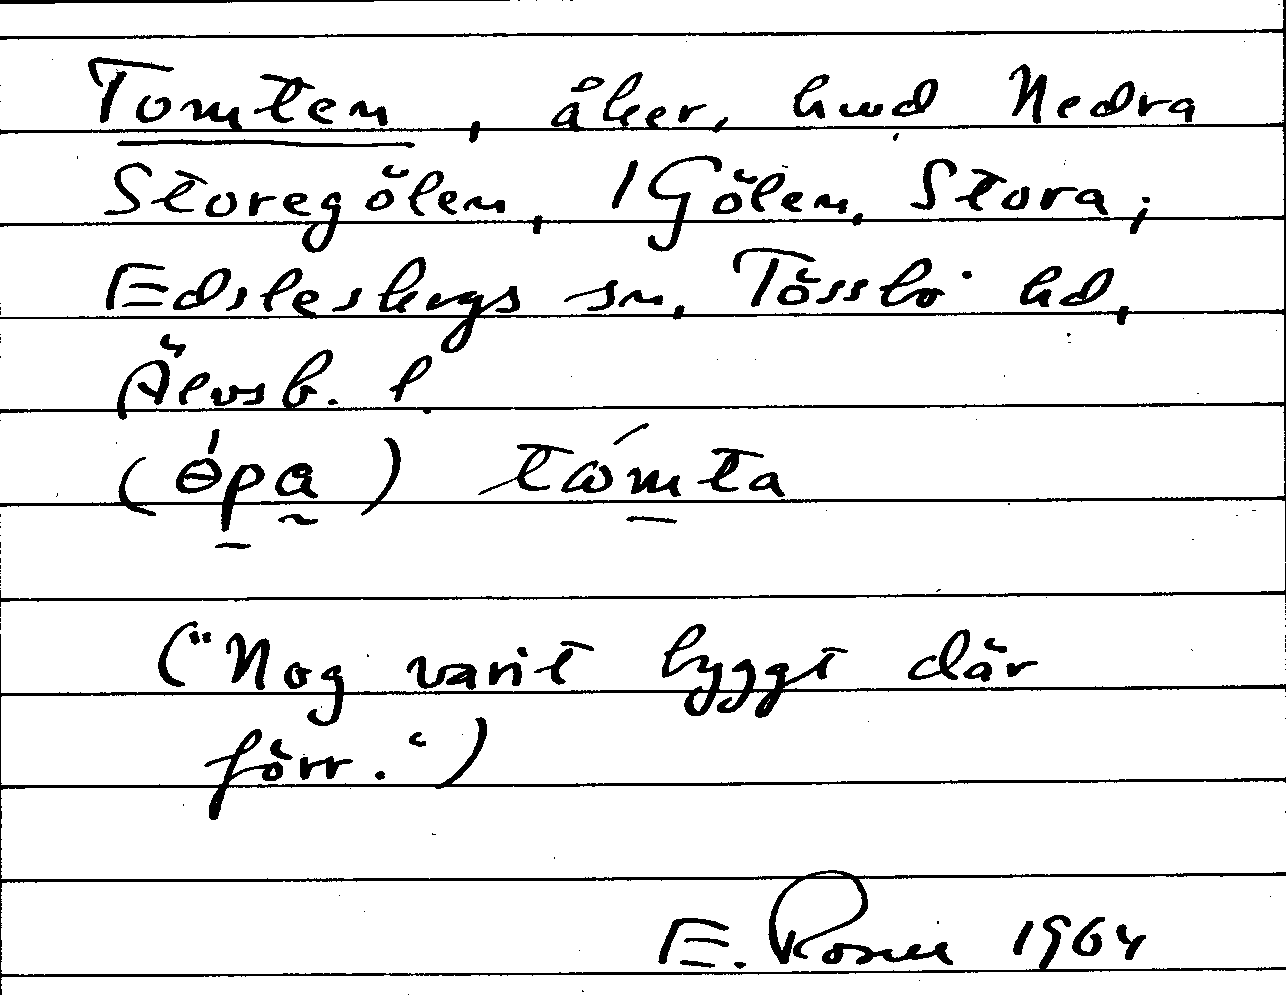 Tomten, åker, hmd Nedra
Storegölen, / Gölen, Stora;
Edsleskogs sn, Tössbo hd,
Älvsb. l.
(ɵ́pa) tɷ́mta
("Nog varit byggt där
förr.")
E. Rosell 1964